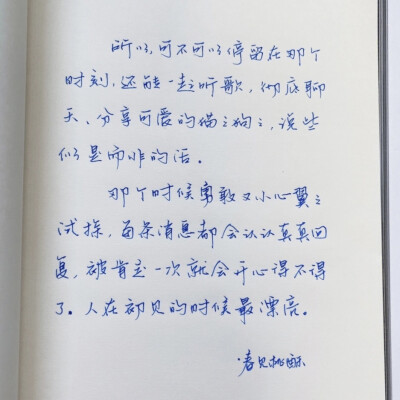 所以,可不可以停留在那个
时刻,还能一起听歌,彻底聊
天、分享可爱的猫々狗々,说些
似是而非的话。
那个时候勇敢又小心翼々
试探,每条消息都会认认真真回
复,被肯定一次就会开心得不得
了。人在初见的时候最漂亮。
·春见桃酥